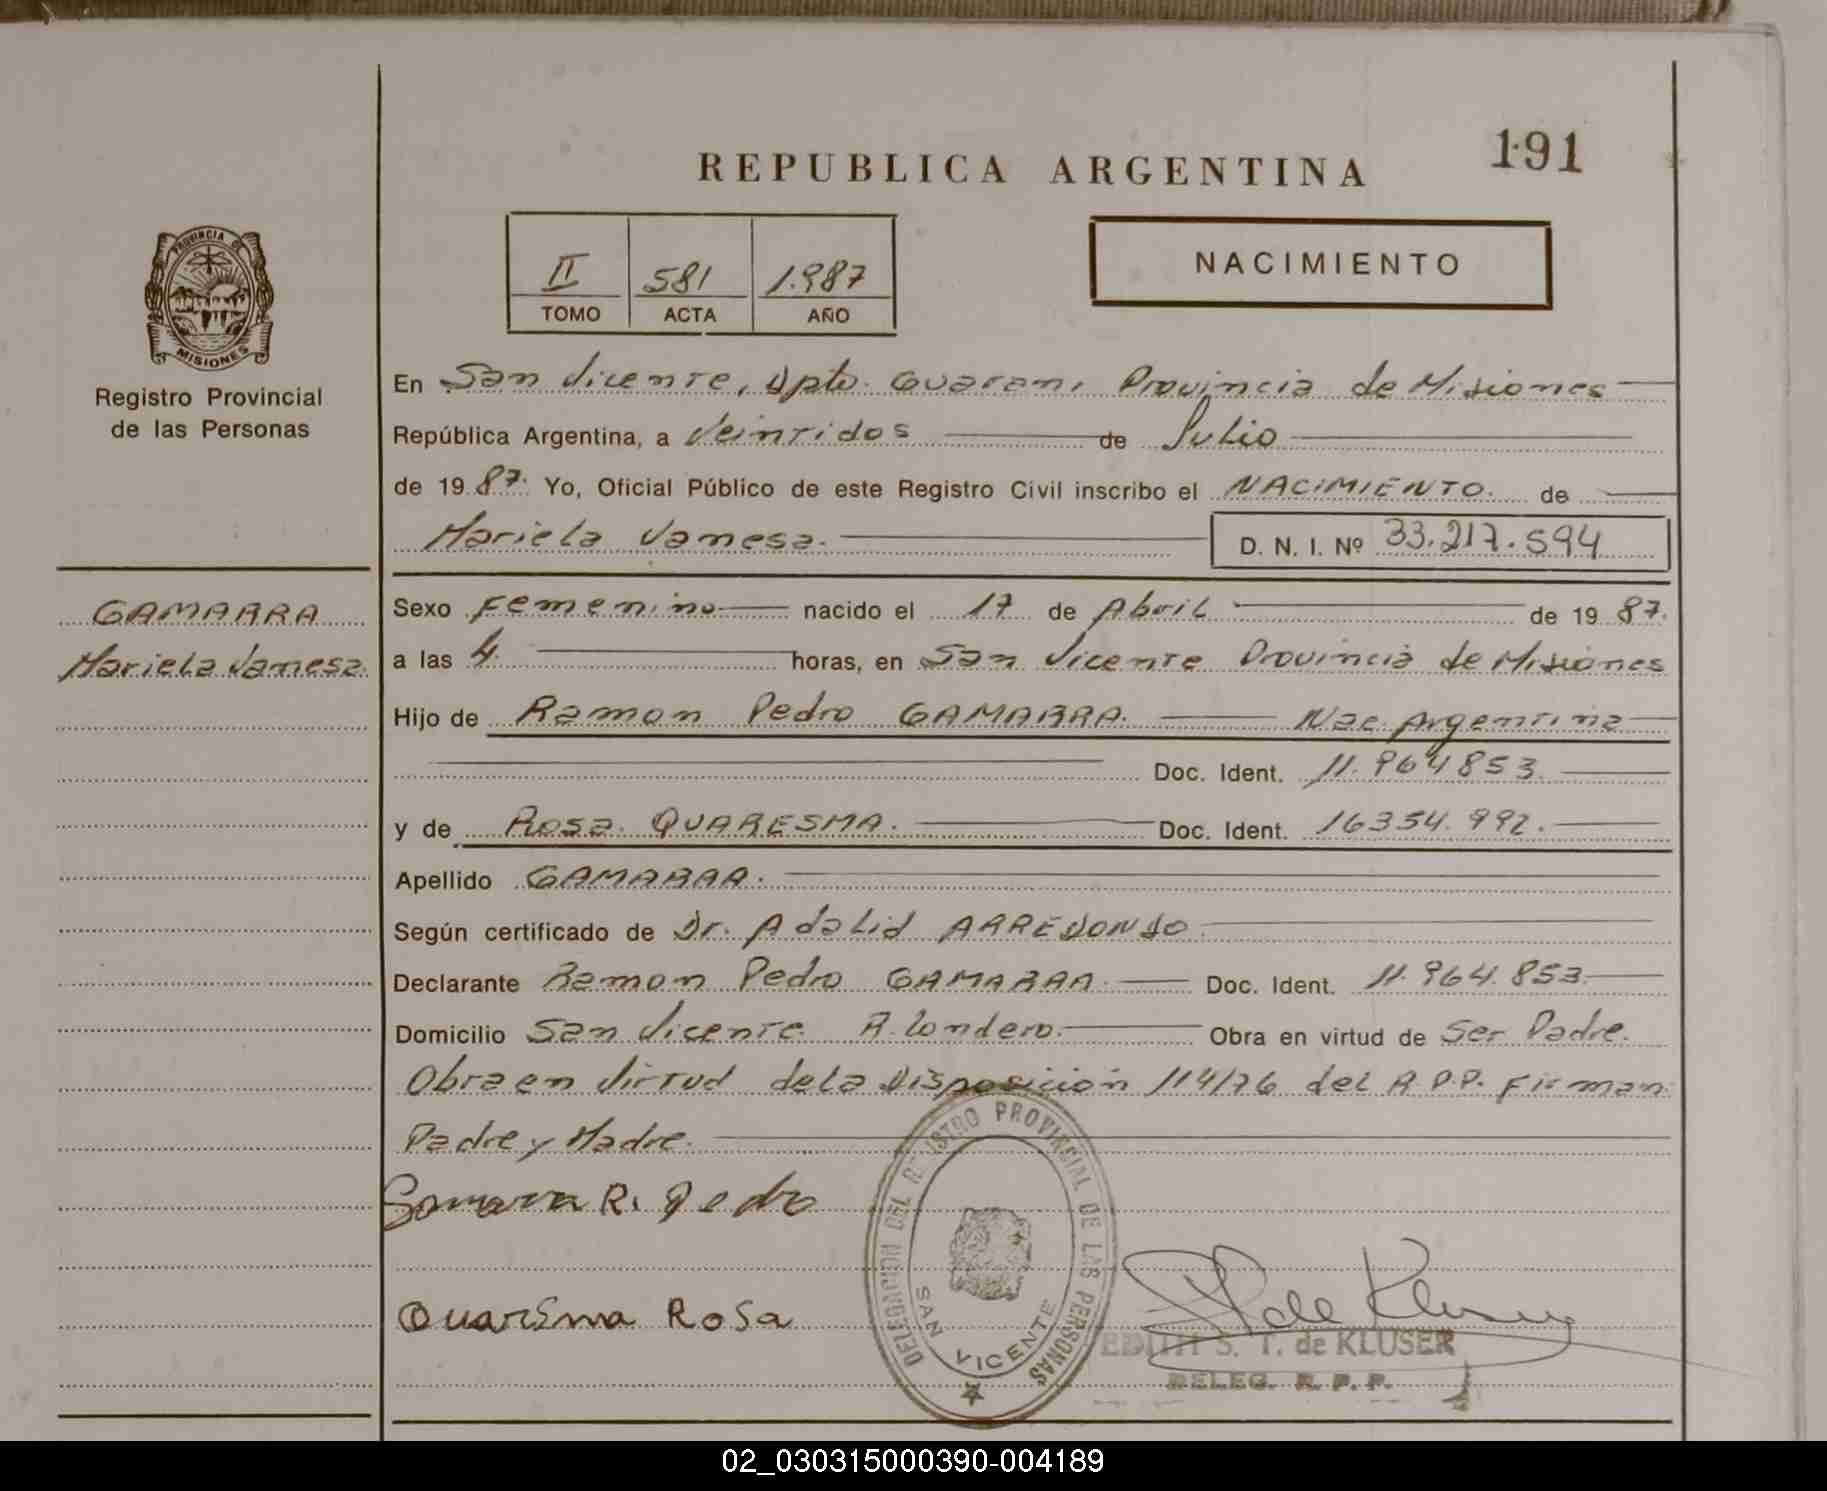 191
REPUBLICA ARGENTINA
NACIMIENTO
II 581 1.987
TOMO ACTA AÑO
PROVINCIA DE
MISIONES
Registro Provincial
de las Personas
GAMARRA
Mariela Vanesa.
En San Vicente, Dpto. Guarani Provincia de Misiones
República Argentina, a Veintidos de Julio
de 1987. Yo, Oficial Público de este Registro Civil inscribo el NACIMIENTO. de
Mariela Vanesa. D. N. I. Nº 33.217.594
Sexo Femenino nacido el 17 de Abril de 1987.
a las 4. horas, en San Vicente Provincia de Misiones
Hijo de Ramon Pedro GAMARRA. Nac. Argentina
Doc. Ident. 11.964853.
y de Rosa QUARESMA. Doc. Ident. 16354.992.
Apellido GAMARRA.
Según certificado de Dr. Adalid ARREDONDO.
Declarante Ramon Pedro GAMARRA. Doc. Ident. 11.964.853.
Domicilio San Vicente. A. Londero. Obra en virtud de Ser Padre.
Obra en Virtud de la Disposición 114/76 del R.P.P. Firman
Padre y Madre.
Gamarra R. Pedro
Quarisma Rosa
DELEGACION DEL REGISTRO PROVINCIAL DE LAS PERSONAS
SAN VICENTE
de Kluser
EDITH S. T. de KLUSER
DELEG. R. P. P.
02_030315000390-004189